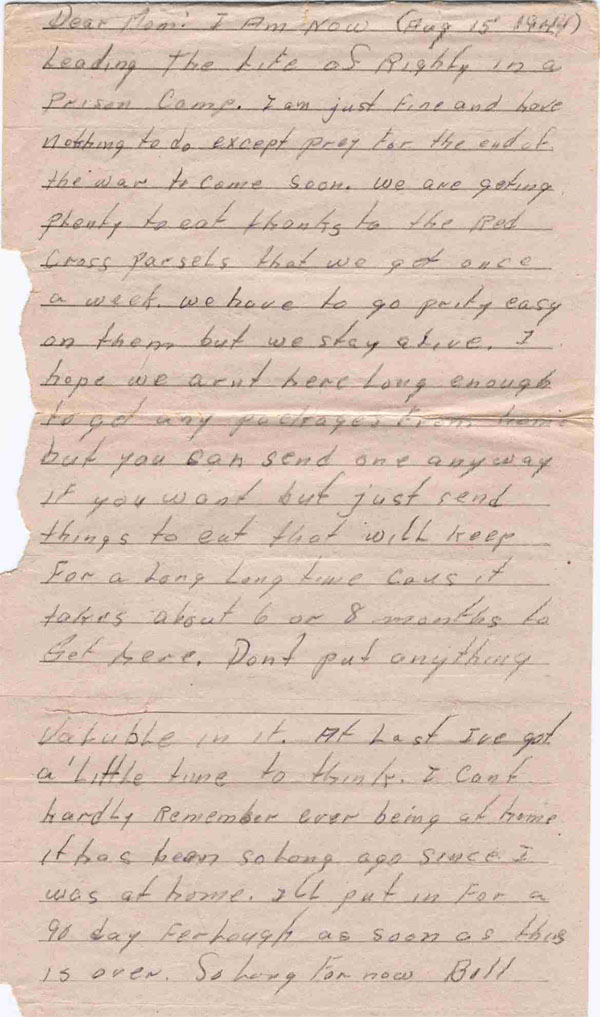 Dear Mom: I Am Now (Aug 15 1944)
Leading The Life of Righty in a
Prison Camp. I am just fine and have
nothing to do except prey for the end of
the war to come soon. we are geting
plenty to eat thanks to the Red
Cross Parsels that we get once
a week. we have to go prity easy
on them but we stay alive. I
hope we arnt here long enough
to get any packages from home
but you can send one anyway
if you want but just send
things to eat that will keep
For a Long Long time Caus it
takes about 6 or 8 months to
Get here. Dont put anything
Valuble in it. At Last Ive got
a Little time to think. I Cant
hardly Remember ever being at home
it has been so long ago since I
was at home. Ill put in For a
90 day Ferlough as soon as this
is over. So Long For now Bill